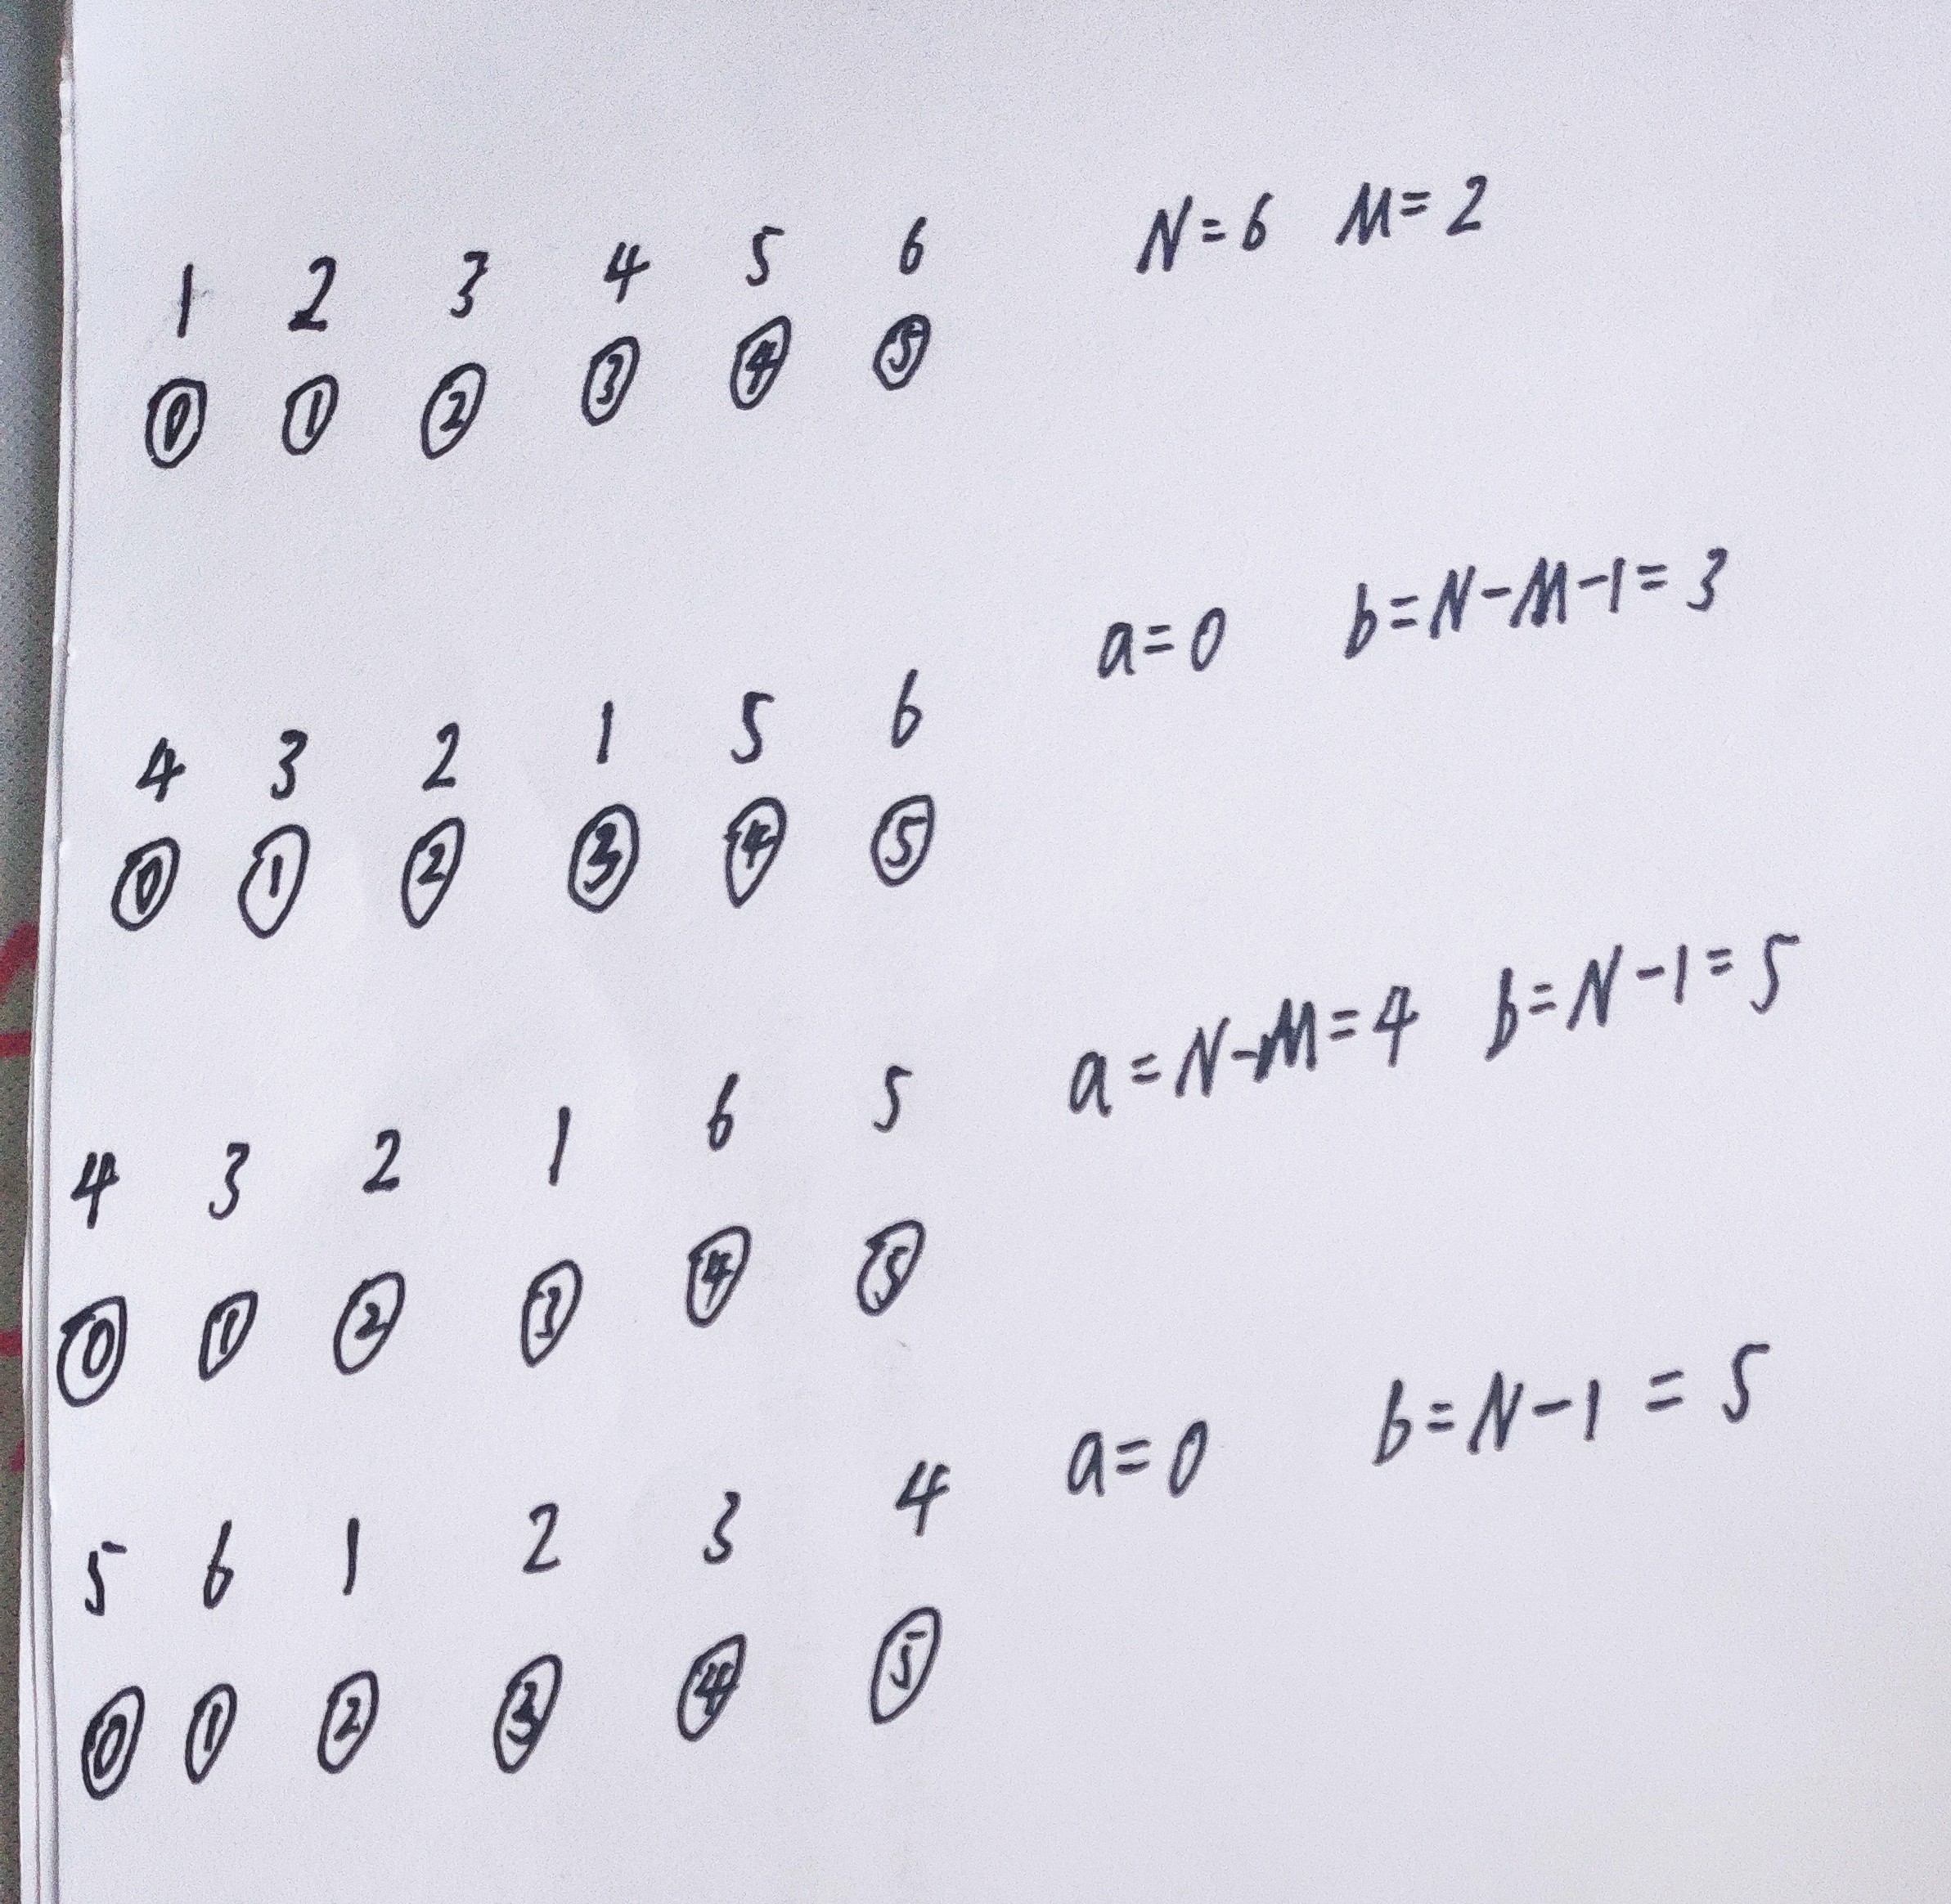 1 2 3 4 5 6 N=6 M=2
⓪ ① ② ③ ④ ⑤
a=0 b=N-M-1=3
4 3 2 1 5 6
⓪ ① ② ③ ④ ⑤
a=N-M=4 b=N-1=5
4 3 2 1 6 5
⓪ ① ② ③ ④ ⑤
a=0 b=N-1=5
5 6 1 2 3 4
⓪ ① ② ③ ④ ⑤